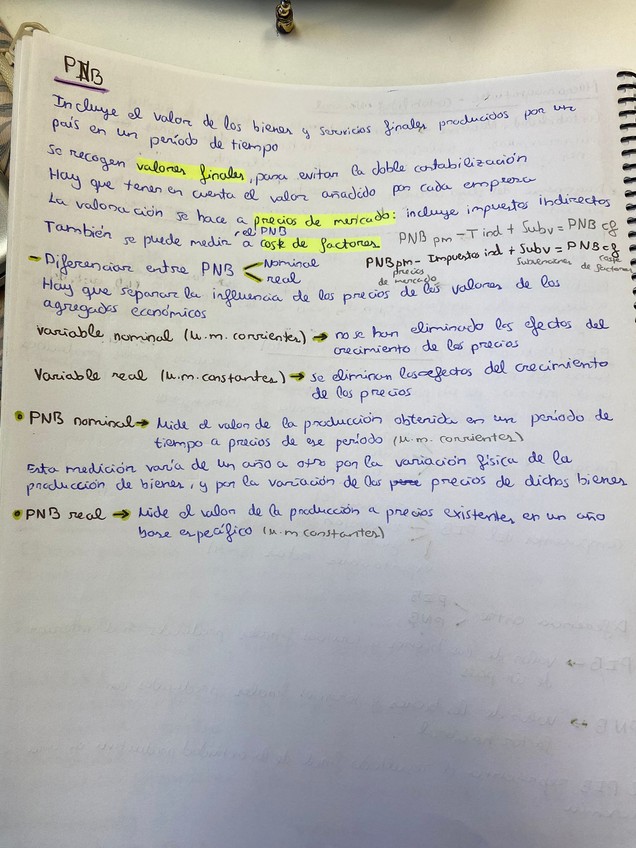 PNB
Incluye el valor de los bienes y servicios finales producidos por un
país en un período de tiempo
Se recogen valores finales, para evitar la doble contabilización
Hay que tener en cuenta el valor añadido por cada empresa
La valoración se hace a precios de mercado: incluye impuestos indirectos
También se puede medir el PNB a coste de factores PNB pm - T ind + Subv = PNB cf
PNB pm - Impuestos ind + Subv = PNB cf
precios de mercado
Subvenciones
coste de factores
- Diferenciar entre PNB < Nominal
real
Hay que separar la influencia de los precios de los valores de los
agregados económicos
Variable nominal (u.m. corrientes) → no se han eliminado los efectos del
crecimiento de los precios
Variable real (u.m. constantes) → se eliminan los efectos del crecimiento
de los precios
• PNB nominal → Mide el valor de la producción obtenida en un período de
tiempo a precios de ese período (u.m. corrientes)
Esta medición varía de un año a otro por la variación física de la
producción de bienes, y por la variación de los precios de dichos bienes
• PNB real → Mide el valor de la producción a precios existentes en un año
base específico (u.m constantes)